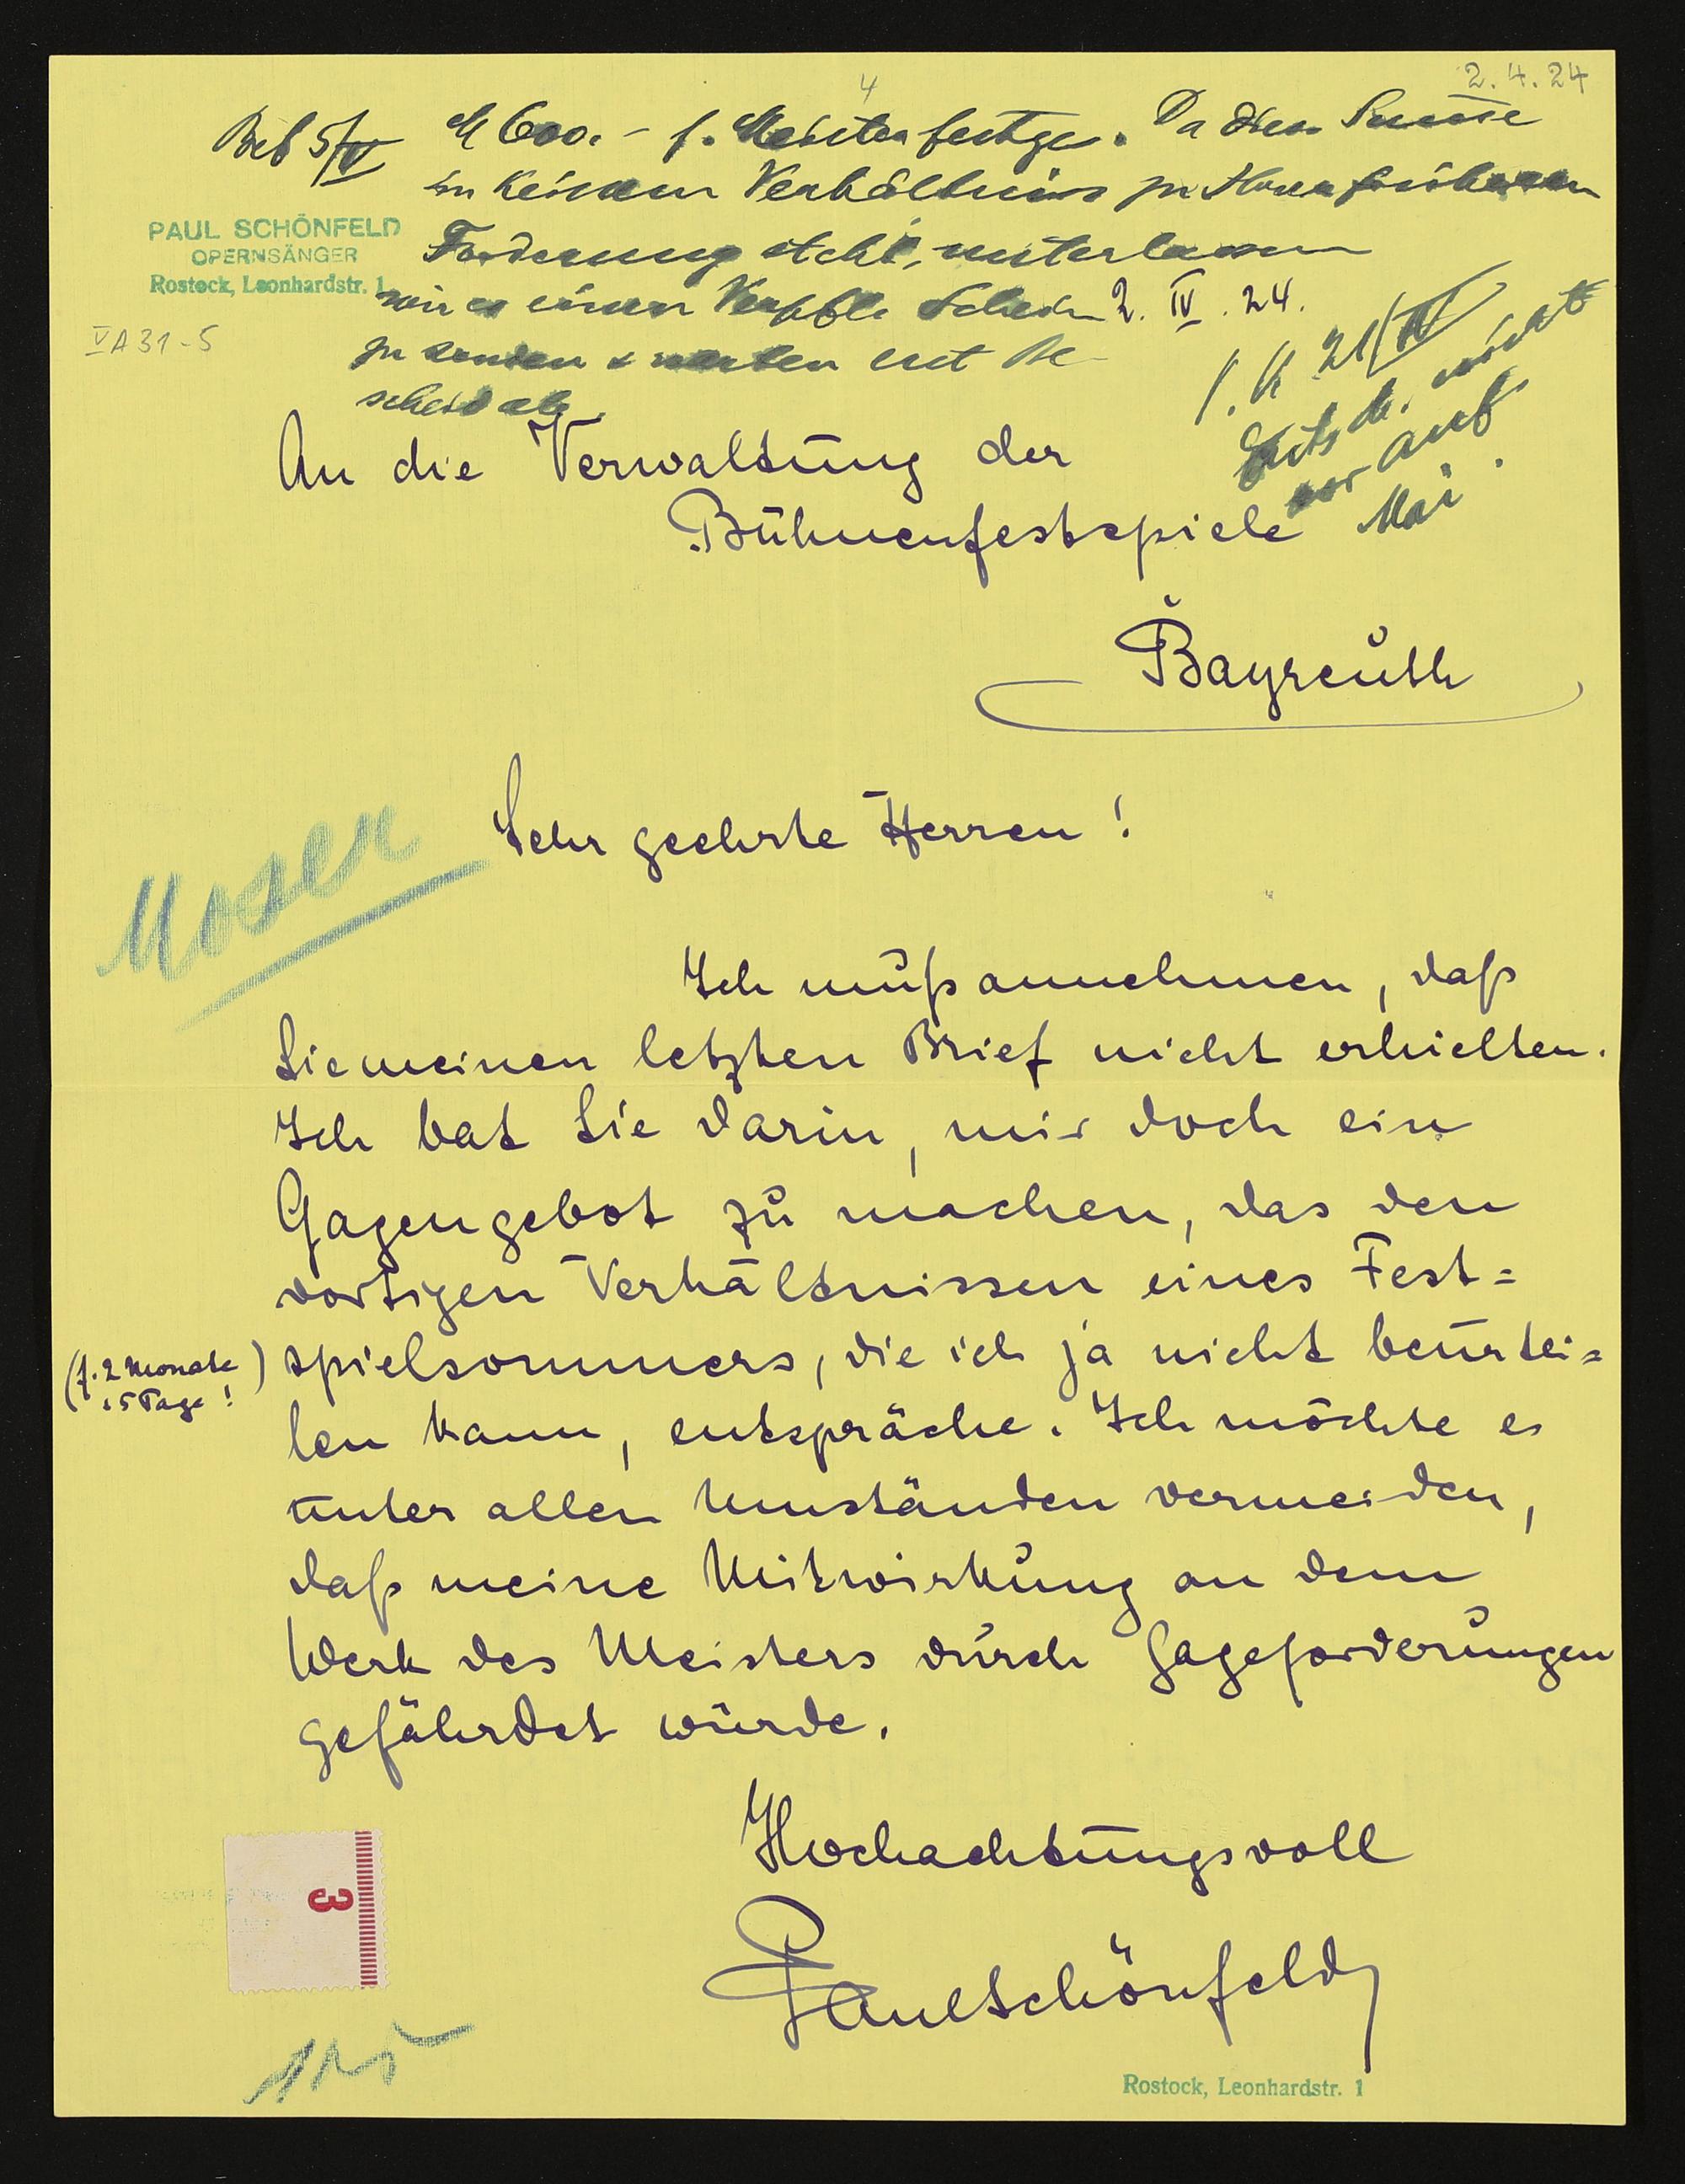 2.4.24
4
M 600.- f. Meister festges. Da diese Summe
in keinem Verhältnis zu Ihrer früheren
Forderung steht, unterlassen
wir es einen Verpfl. Schein
zu senden & warten erst Be-
scheid ab.
PAUL SCHÖNFELD
OPERNSÄNGER
Rostock, Leonhardstr. 1
V A 31-5
2. IV. 24.
21/IV
nicht
vor Anf.
Mai.
An die Verwaltung der
Bühnenfestspiele
Bayreuth
Moser
Sehr geehrte Herren!
Ich muß annehmen, daß
Sie meinen letzten Brief nicht erhielten.
Ich bat Sie darin, mir doch ein
Gagengebot zu machen, das den
dortigen Verhältnissen eines Fest=
(f. 2 Monate
15 Tage!)
spielsommers, die ich ja nicht beurtei=
len kann, entspräche. Ich möchte es
unter allen Umständen vermeiden,
daß meine Mitwirkung an dem
Werk des Meisters durch Gageforderungen
gefährdet würde.
Hochachtungsvoll
Paul Schönfeld
3
Rostock, Leonhardstr. 1